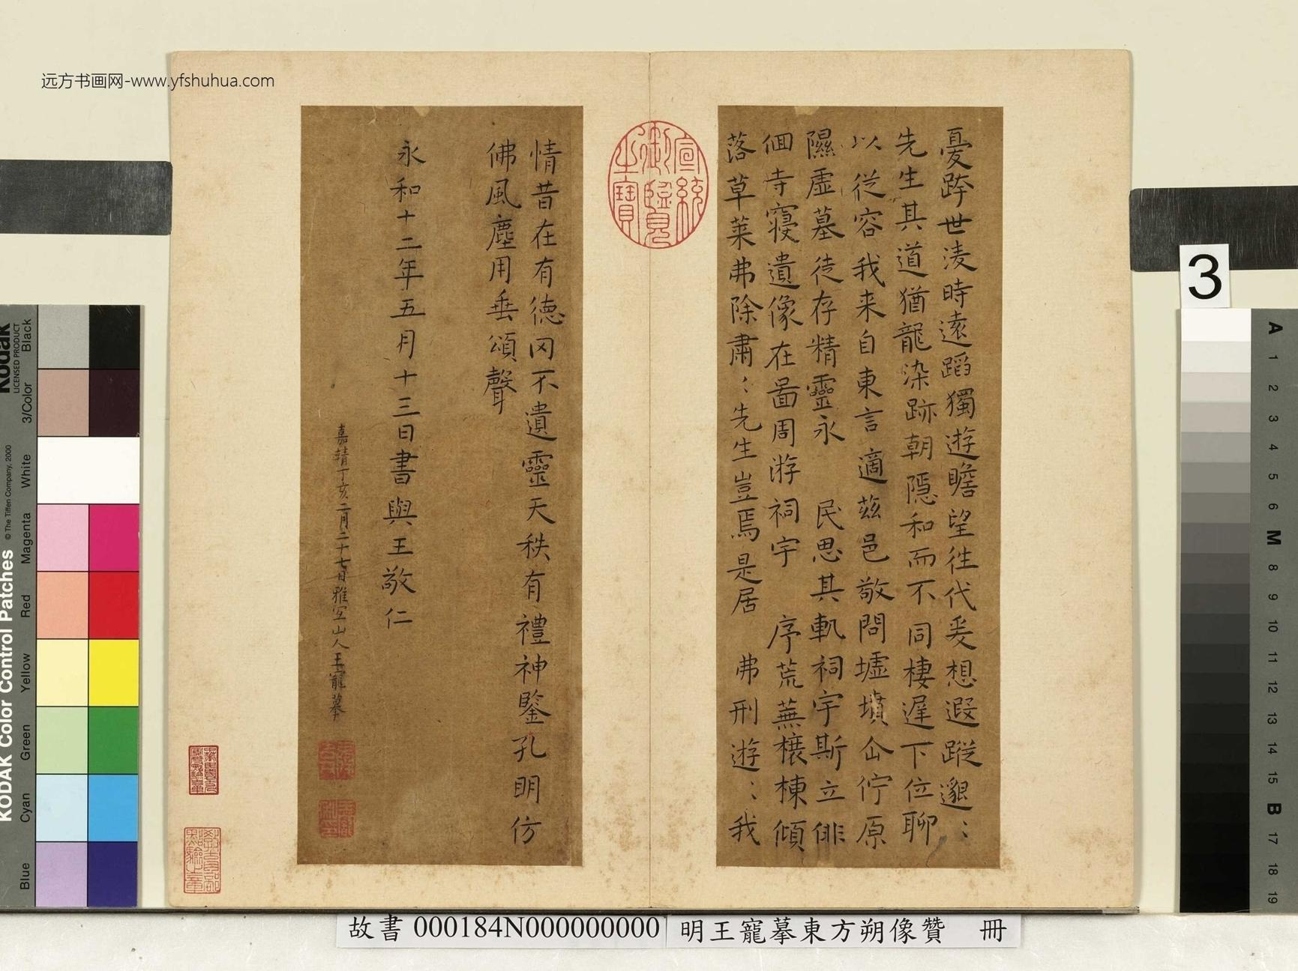 远方书画网-www.yfshuhua.com
憂跨世淩時遠蹈獨遊瞻望往代爰想遐蹤邈〻
先生其道猶龍染跡朝隱和而不同棲遲下位聊
以從容我来自東言適茲邑敬問墟墳企佇原
隰虛墓徒存精靈永 民思其軌祠宇斯立俳
佪寺寝遺像在啚周遊祠宇 序荒蕪榱棟傾
落草莱弗除肅〻先生豈焉是居 弗刑遊〻我
宣統御覽之寶
情昔在有德冈不遺靈天秩有禮神鑒孔明仿
佛風塵用垂頌聲
永和十二年五月十三日書與王敬仁
嘉靖丁亥二月二十七日雅宜山人王寵摹
3
KODAK Color Control Patches
© The Tiffen Company, 2000
Kodak
LICENSED PRODUCT
Blue
Cyan
Green
Yellow
Red
Magenta
White
3/Color
Black
A
1
2
3
4
5
6
M
8
9
10
11
12
13
14
15
B
17
18
19
故書 000184N000000000
明王寵摹東方朔像贊 冊